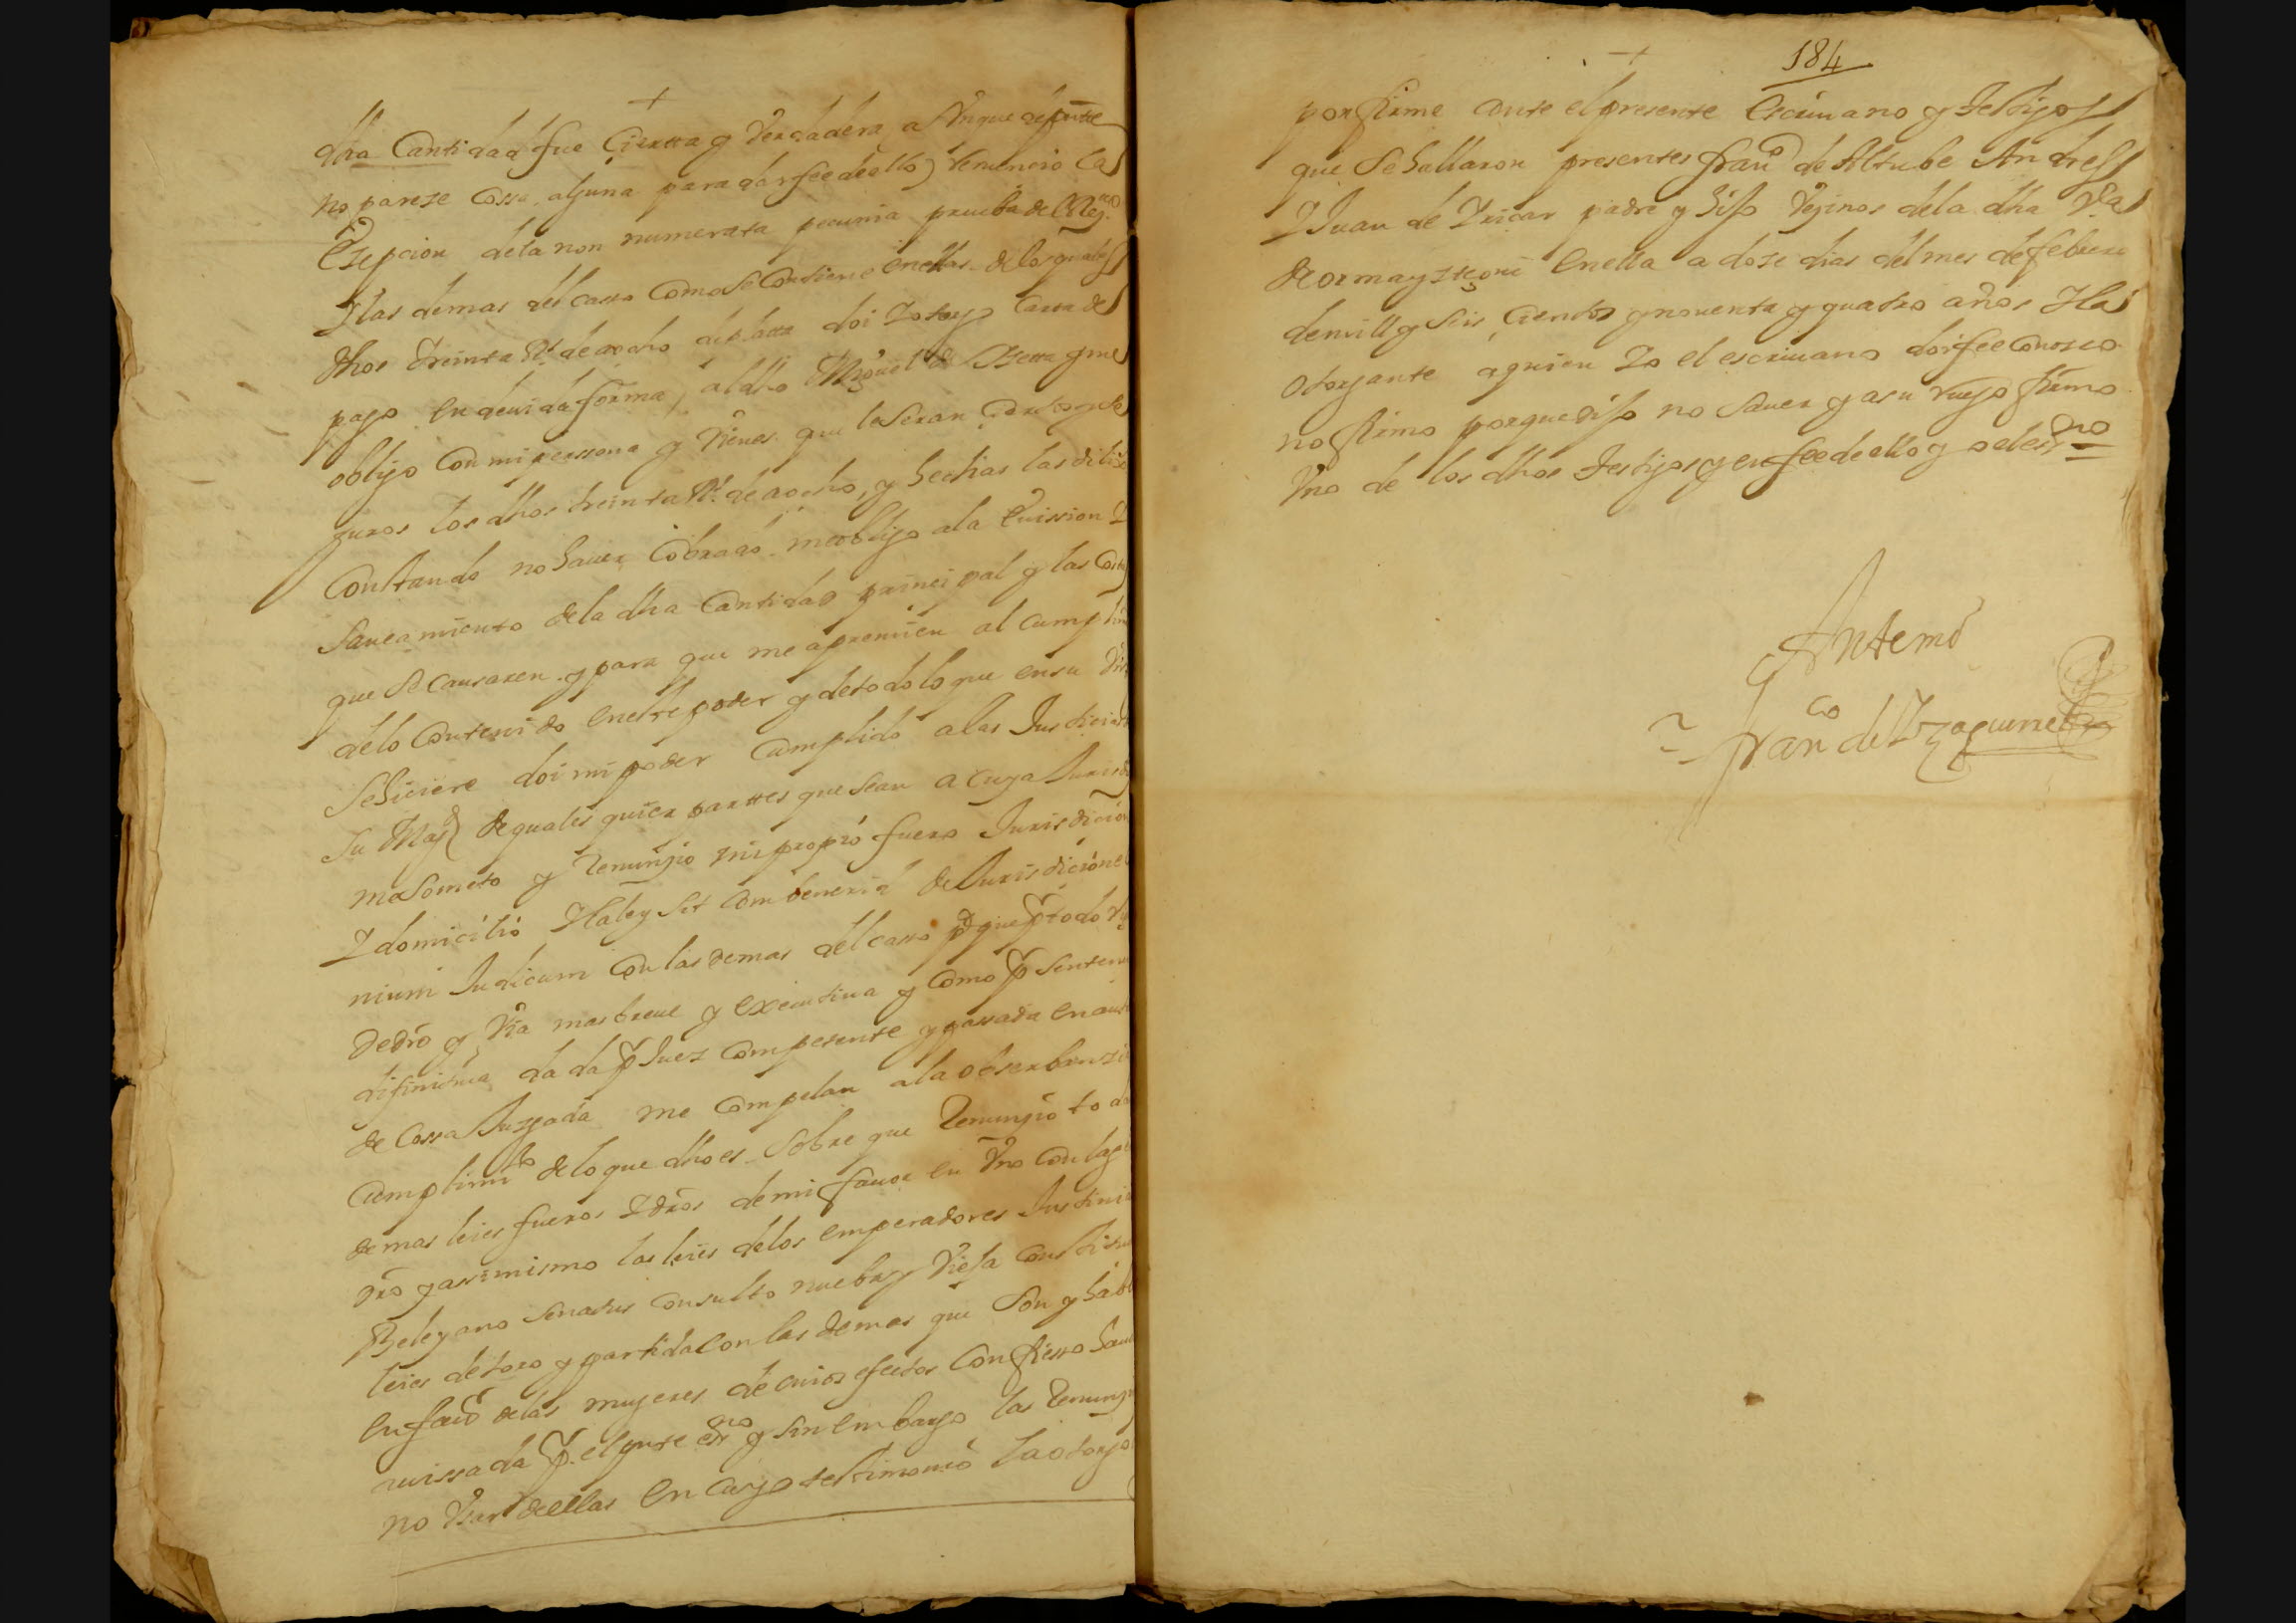 +
dha Cantidad fue Cierta y Verdadera, a Anque de presste
no pareze Cossa alguna para dar fee de ello) Renuncio las
Ezepcion de la non numerata pecunia prueba de la
Y las demas del casso Como Se Contiene en ellas de los quales
dhos treinta Rs. de aocho de platta doi Y otorgo Carta de
pago en deuida forma, al dho Miguel de y me
obligo Con mi perssona y Vienes que le Seran Ciertos y Se
guros los dhos treinta Rs. de aocho, y hechas las dilixe
Constando no hauer Cobrado. me obligo ala Euission Y
Saneamiento de la dha Cantidad prinçipal y las Costas
que Se Causaren. y para que me apremien al Cumplim
de lo Contenido en este poder y de todo lo que en su Virt
Se hiciere doi mi poder Cumplido a las Justicias
Su Magd de quales quier parttes que Sean a Cuya Jurisd
me Someto y Renunçio mi propio fuero Jurisdicion
Y domicilio Y la ley Sit Combenerid de Jurisdicione
nium Judicum Con las demas del casso pa que pr todo Ri
de dro y Via mas breue y executiua y Como pr Senten
difinitiua dada pr Juez Competente y passada en aut
de Cossa Juzgada me Compelan a la obserbanzia
Cumplimto de lo que dho es. Sobre que Renunçio todas
demas leies fueros Y dros de mi fauor en Vno Con la ge
dro y assimismo las leies de los emperadores Justinia
Beleyano Senatus Consulto nueba y Vieja Constitu
leies de toro y partida Con las demas que Son y habl
en fauor de las mugeres de Cuios efectos Confiesso hauer
auissada pr el press.te essno y Sin embargo las Renunçi
no Vsar de ellas en Cuyo testimonio la otorgo
+
184
por firme Ante el presente Escriuano y testigos
que Se hallaron presentes franco de Altube Andres
Y Juan de Yricar padre y hijo Vezinos de la dha Va
de ormayztegui en ella a doze dias del mes de febrero
de mill y Seis Cientos y nouenta y quatro años Y la
otorgante a quien Yo el escriuano doi fee Conozco
no firmo porque dijo no Sauer y a su ruego firmo
Vno de los dhos testigos y en fee de ello yo el essno
Antemi
franco de Yzaguirre